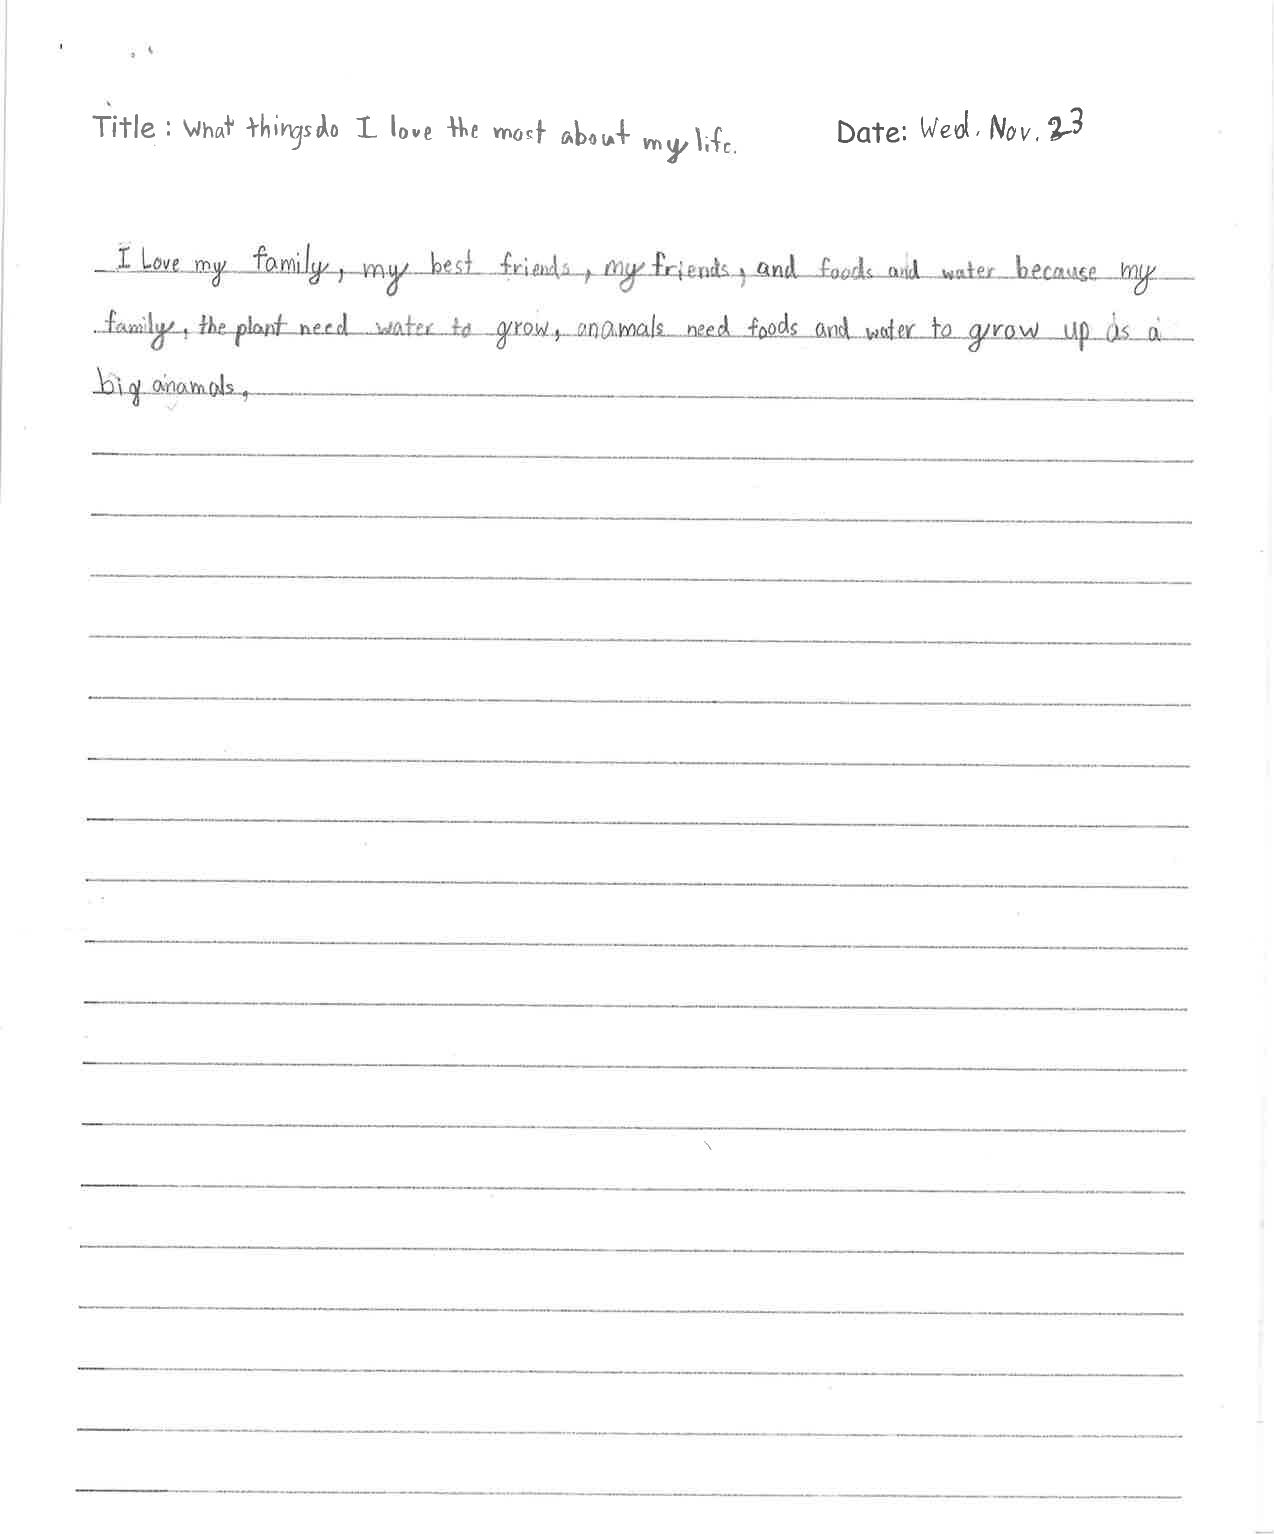 Title: What things do I love the most about my life. Date: Wed. Nov. 23
I Love my family, my best friends, my friends, and foods and water because my
family, the plant need water to grow, anamals need foods and water to grow up as a
big anamals,